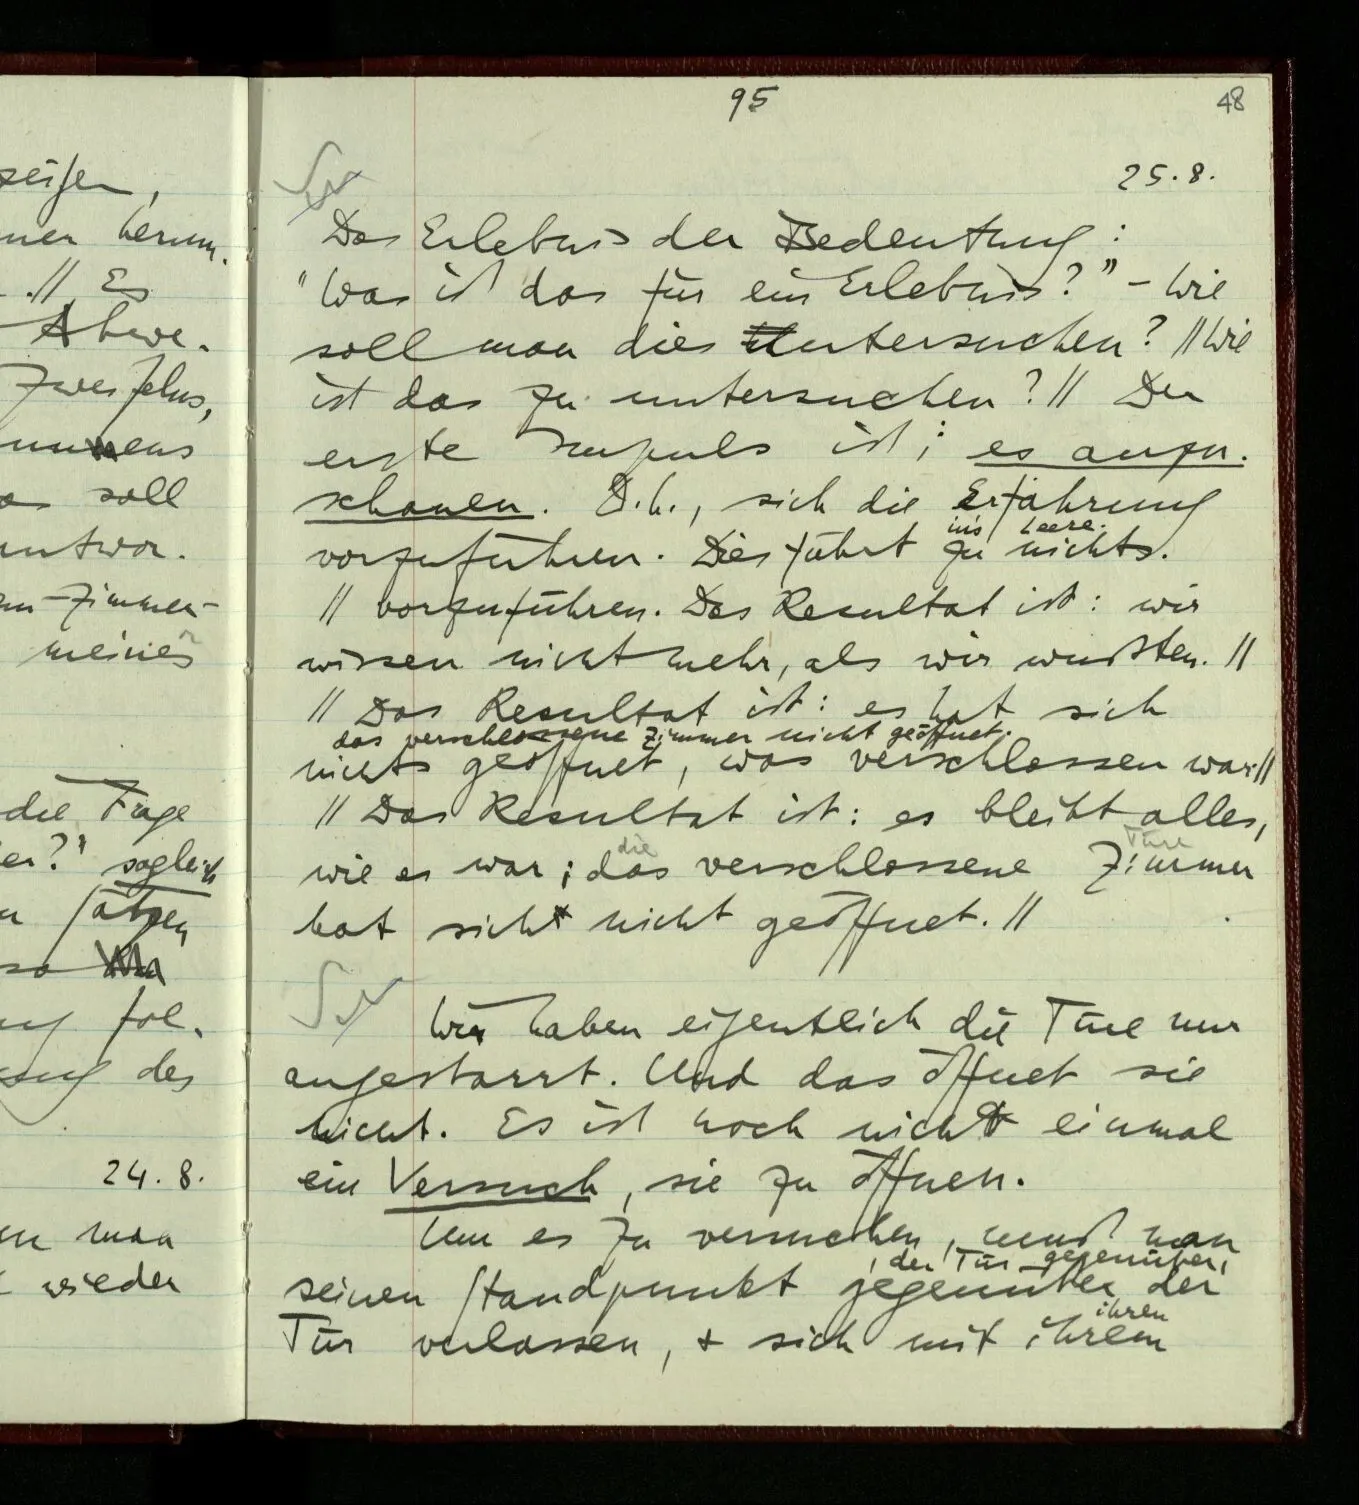 zeigen,
ner herum.
. // Es
Abwe-
Zweifelns,
mens
soll
antwor-
-Zimmer-
meines
die Frage
er?" sogleich
fol-
des
24.8.
man
wieder
95
48
25.8.
Das Erlebnis der Bedeutung:
"Was ist das für ein Erlebnis?" – Wie
soll man dies untersuchen? // Wie
ist das zu untersuchen? // Der
erste Impuls ist: es anzu-
schauen. D.h., sich die Erfahrung
ins Leere.
vorzuführen. Dies führt zu nichts.
// vorzuführen. Das Resultat ist: wir
wissen nicht mehr, als wir wußten. //
// Das Resultat ist: es hat sich
das verschlossene Zimmer nicht geöffnet.
nichts geöffnet, was verschlossen war. //
// Das Resultat ist: es bleibt alles,
die Türe
wie es war; das verschlossene Zimmer
hat sich nicht geöffnet. //
Wir haben eigentlich die Türe nur
angestarrt. Und das öffnet sie
nicht. Es ist noch nicht einmal
ein Versuch, sie zu öffnen.
Um es zu versuchen, muß man
, der Tür gegenüber,
seinen Standpunkt gegenüber der
ihren
Tür verlassen, + sich mit ihrem